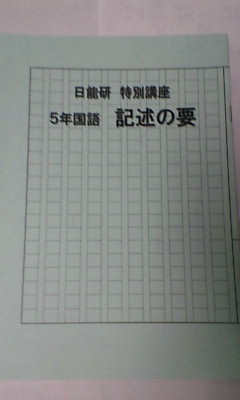 日能研 特別講座
5年国語 記述の要